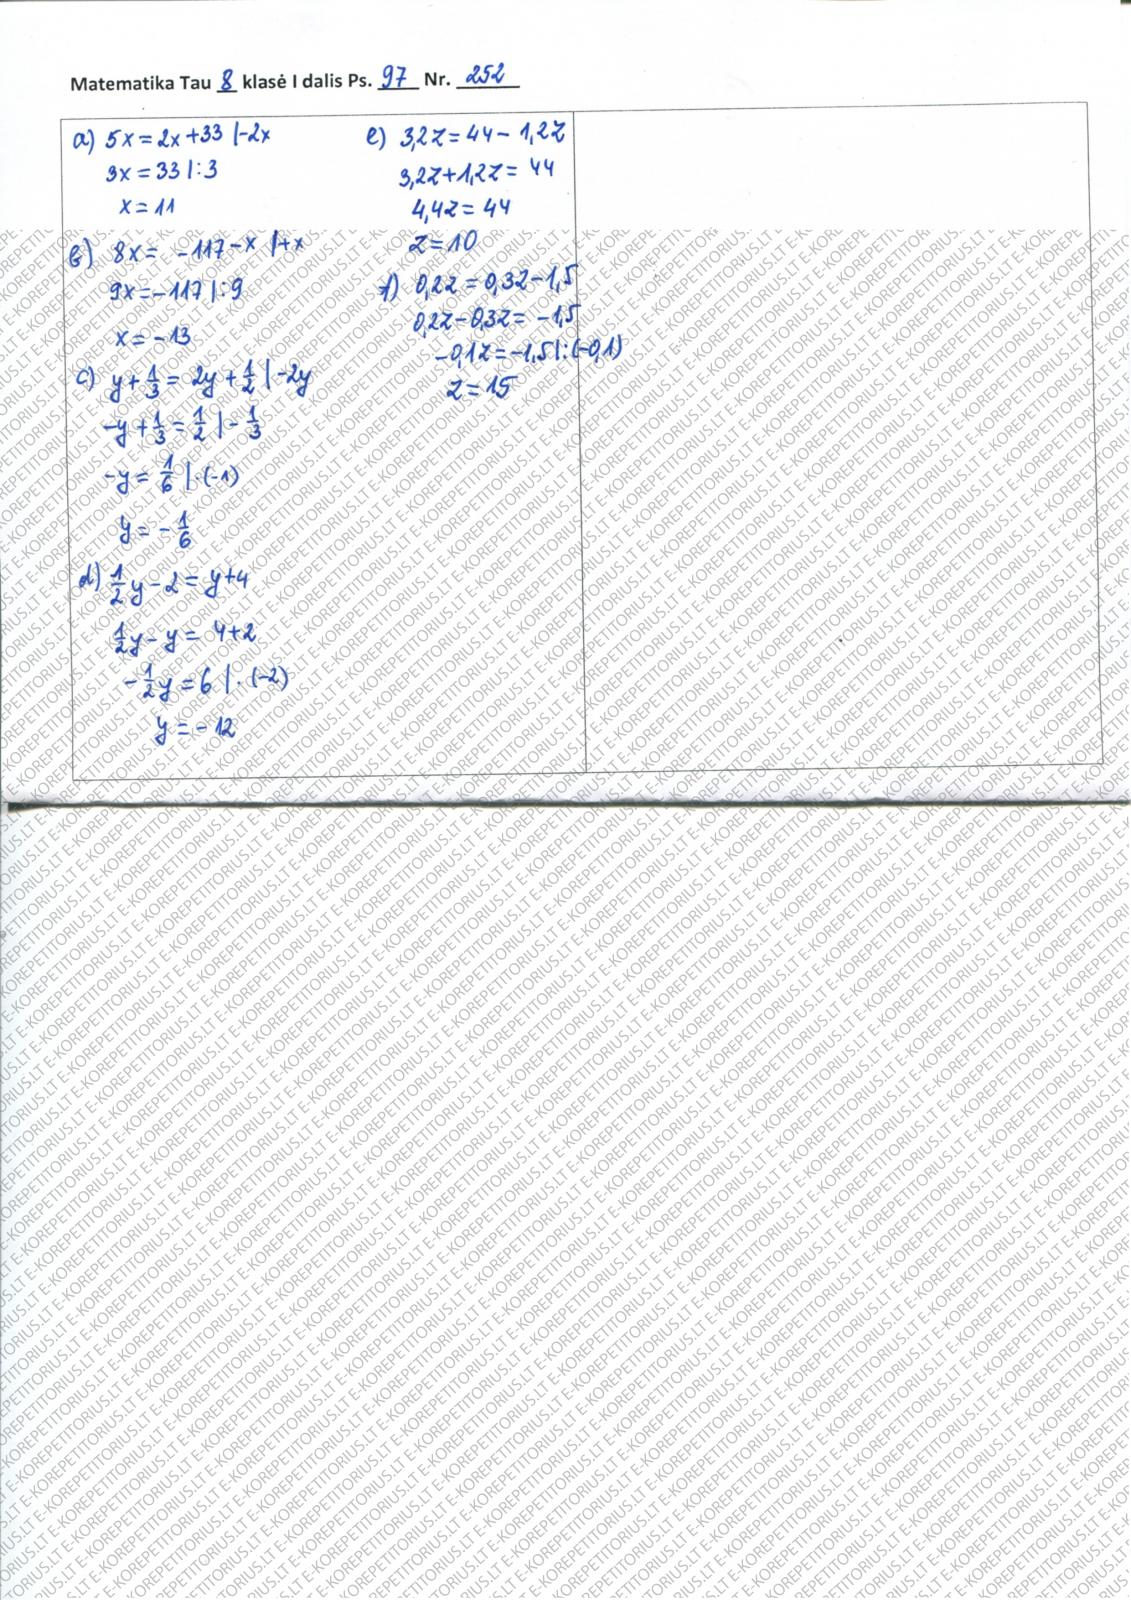 Matematika Tau 8 klasė I dalis Ps. 97 Nr. 252
a) 5x = 2x + 33 |-2x
3x = 33 |:3
x = 11
b) 8x = -117 - x |+x
9x = -117 |:9
x = -13
c) y + 1/3 = 2y + 1/2 | -2y
-y + 1/3 = 1/2 | - 1/3
-y = 1/6 | ·(-1)
y = - 1/6
d) 1/2 y - 2 = y + 4
1/2 y - y = 4 + 2
- 1/2 y = 6 | · (-2)
y = - 12
e) 3,2z = 44 - 1,2z
3,2z + 1,2z = 44
4,4z = 44
z = 10
f) 0,2z = 0,3z - 1,5
0,2z - 0,3z = -1,5
-0,1z = -1,5 |:(-0,1)
z = 15
E-KOREPETITORIUS.LT